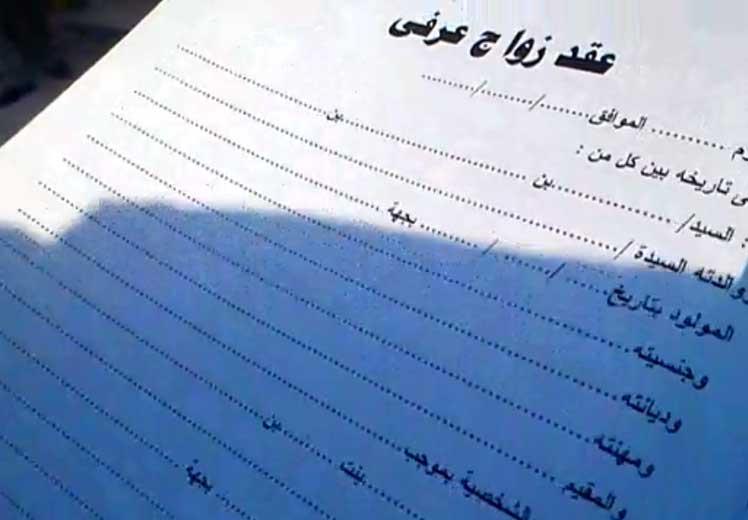 عقد زواج عرفى
الموافق ....../......../........
تاريخه بين كل من :
السيد/ ........................ بن ........................ بن ........................
والدته السيدة /........................
المولود بتاريخ ....../......../........ بجهة ........................
وجنسيته ........................
وديانته ........................
ومهنته ........................
والمقيم ........................
الشخصية بموجب ........................
بنت ........ بن ........................
بجهة ........................